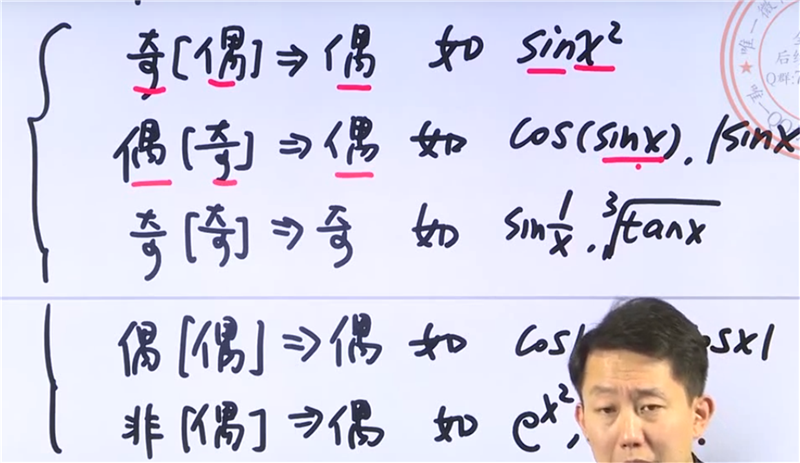 奇[偶]⇒偶 如 sinx²
偶[奇]⇒偶 如 cos(sinx), |sinx
奇[奇]⇒奇 如 sin1/x, ³√tanx
偶[偶]⇒偶 如 cos| osx|
非[偶]⇒偶 如 eˣ²,
唯一微
后续
Q群:7
唯一QQ